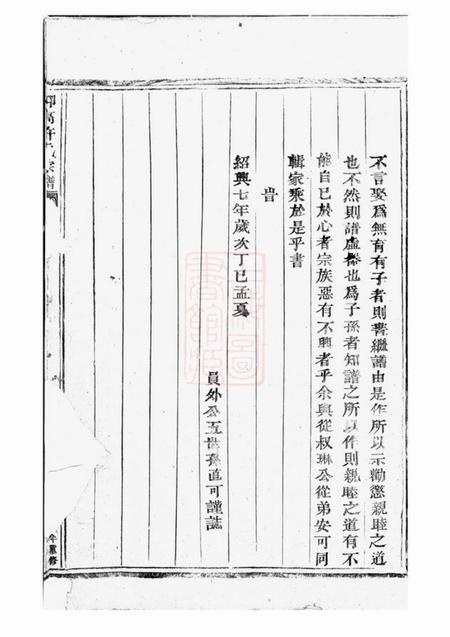 不言娶爲無有有子者則書繼譜由是作所以示勸懲親睦之道
也不然則譜虛捺也爲子孫者知譜之所以作則親睦之道有不
能自已於心者宗族惡有不興者乎余與從叔琳公從弟安可同
輯家乘於是乎書
旹
紹興七年歲次丁巳孟夏
員外公五世孫直可謹誌
許氏宗譜
重修